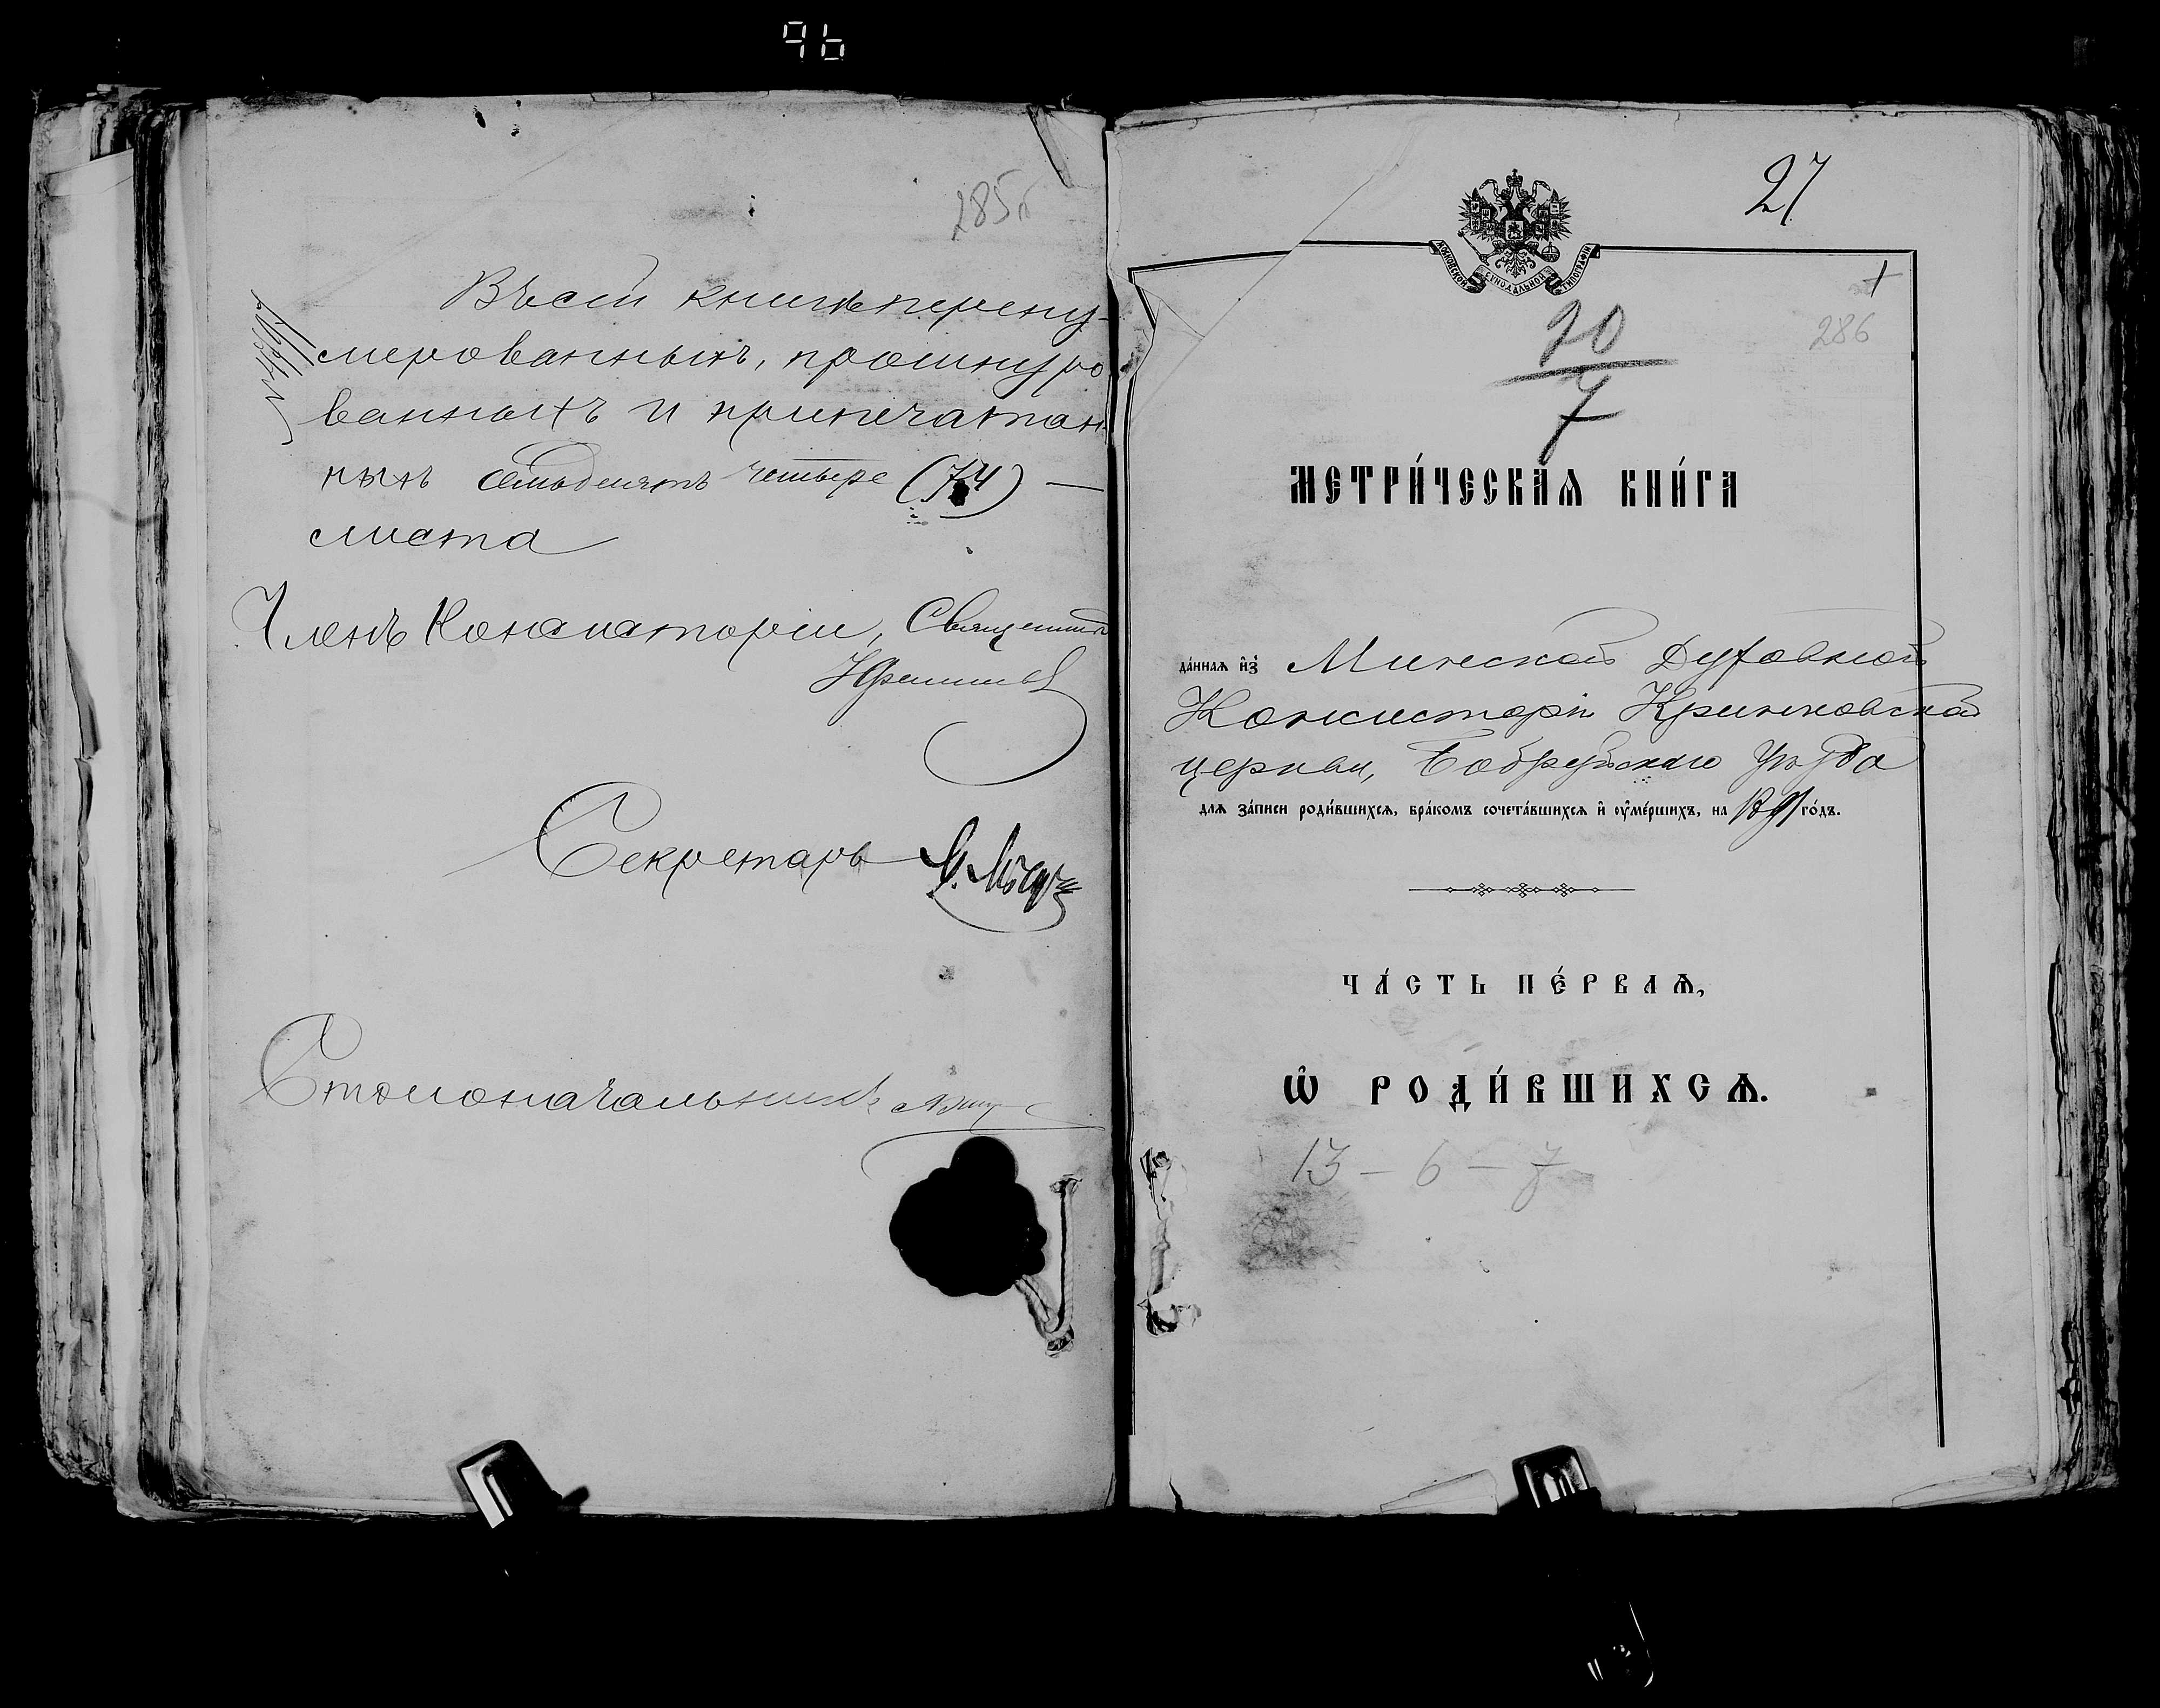 96
285об
Въ сей книгѣ перену-
мерованныхъ, прошнуро
ванныхъ и припечатан-
ныхъ семьдесятъ четыре (74) —
листа
Членъ Консисторіи, Священникъ
Секретарь
Столоначальникъ
27
МОСКОВСКОЙ СѴНОДАЛЬНОЙ ТИПОГРАФІИ
1
286
20
7
МЕТРИ́ЧЕСКАѦ КНИ́ГА
да́ннаѧ и҆з̾ Минской Духовной
Консисторіи Кринковской
церкви, Бобруйскаго уѣзда
для за́писи роди́вшихсѧ, бра́комъ сочета́вшихсѧ и҆ ᲂу҆ме́ршихъ, на 1891 го́дъ.
ЧА́СТЬ ПЕ́РВАѦ,
Ѽ РОДИ́ВШИХСѦ.
13 – 6 – 7